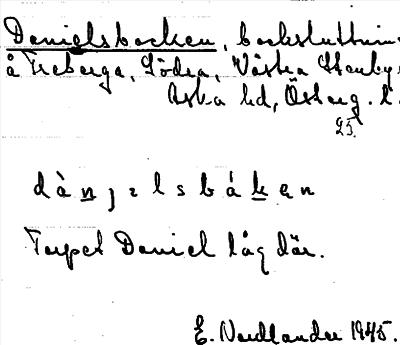 Danielsbacken, backsluttnin
å Freberga, Södra, Västra Stenby s
Aska hd, Österg. l.
25.
dàn̲ɟɛlsbák̲ən
Torpet Daniel låg där.
E. Nordlander 1945.